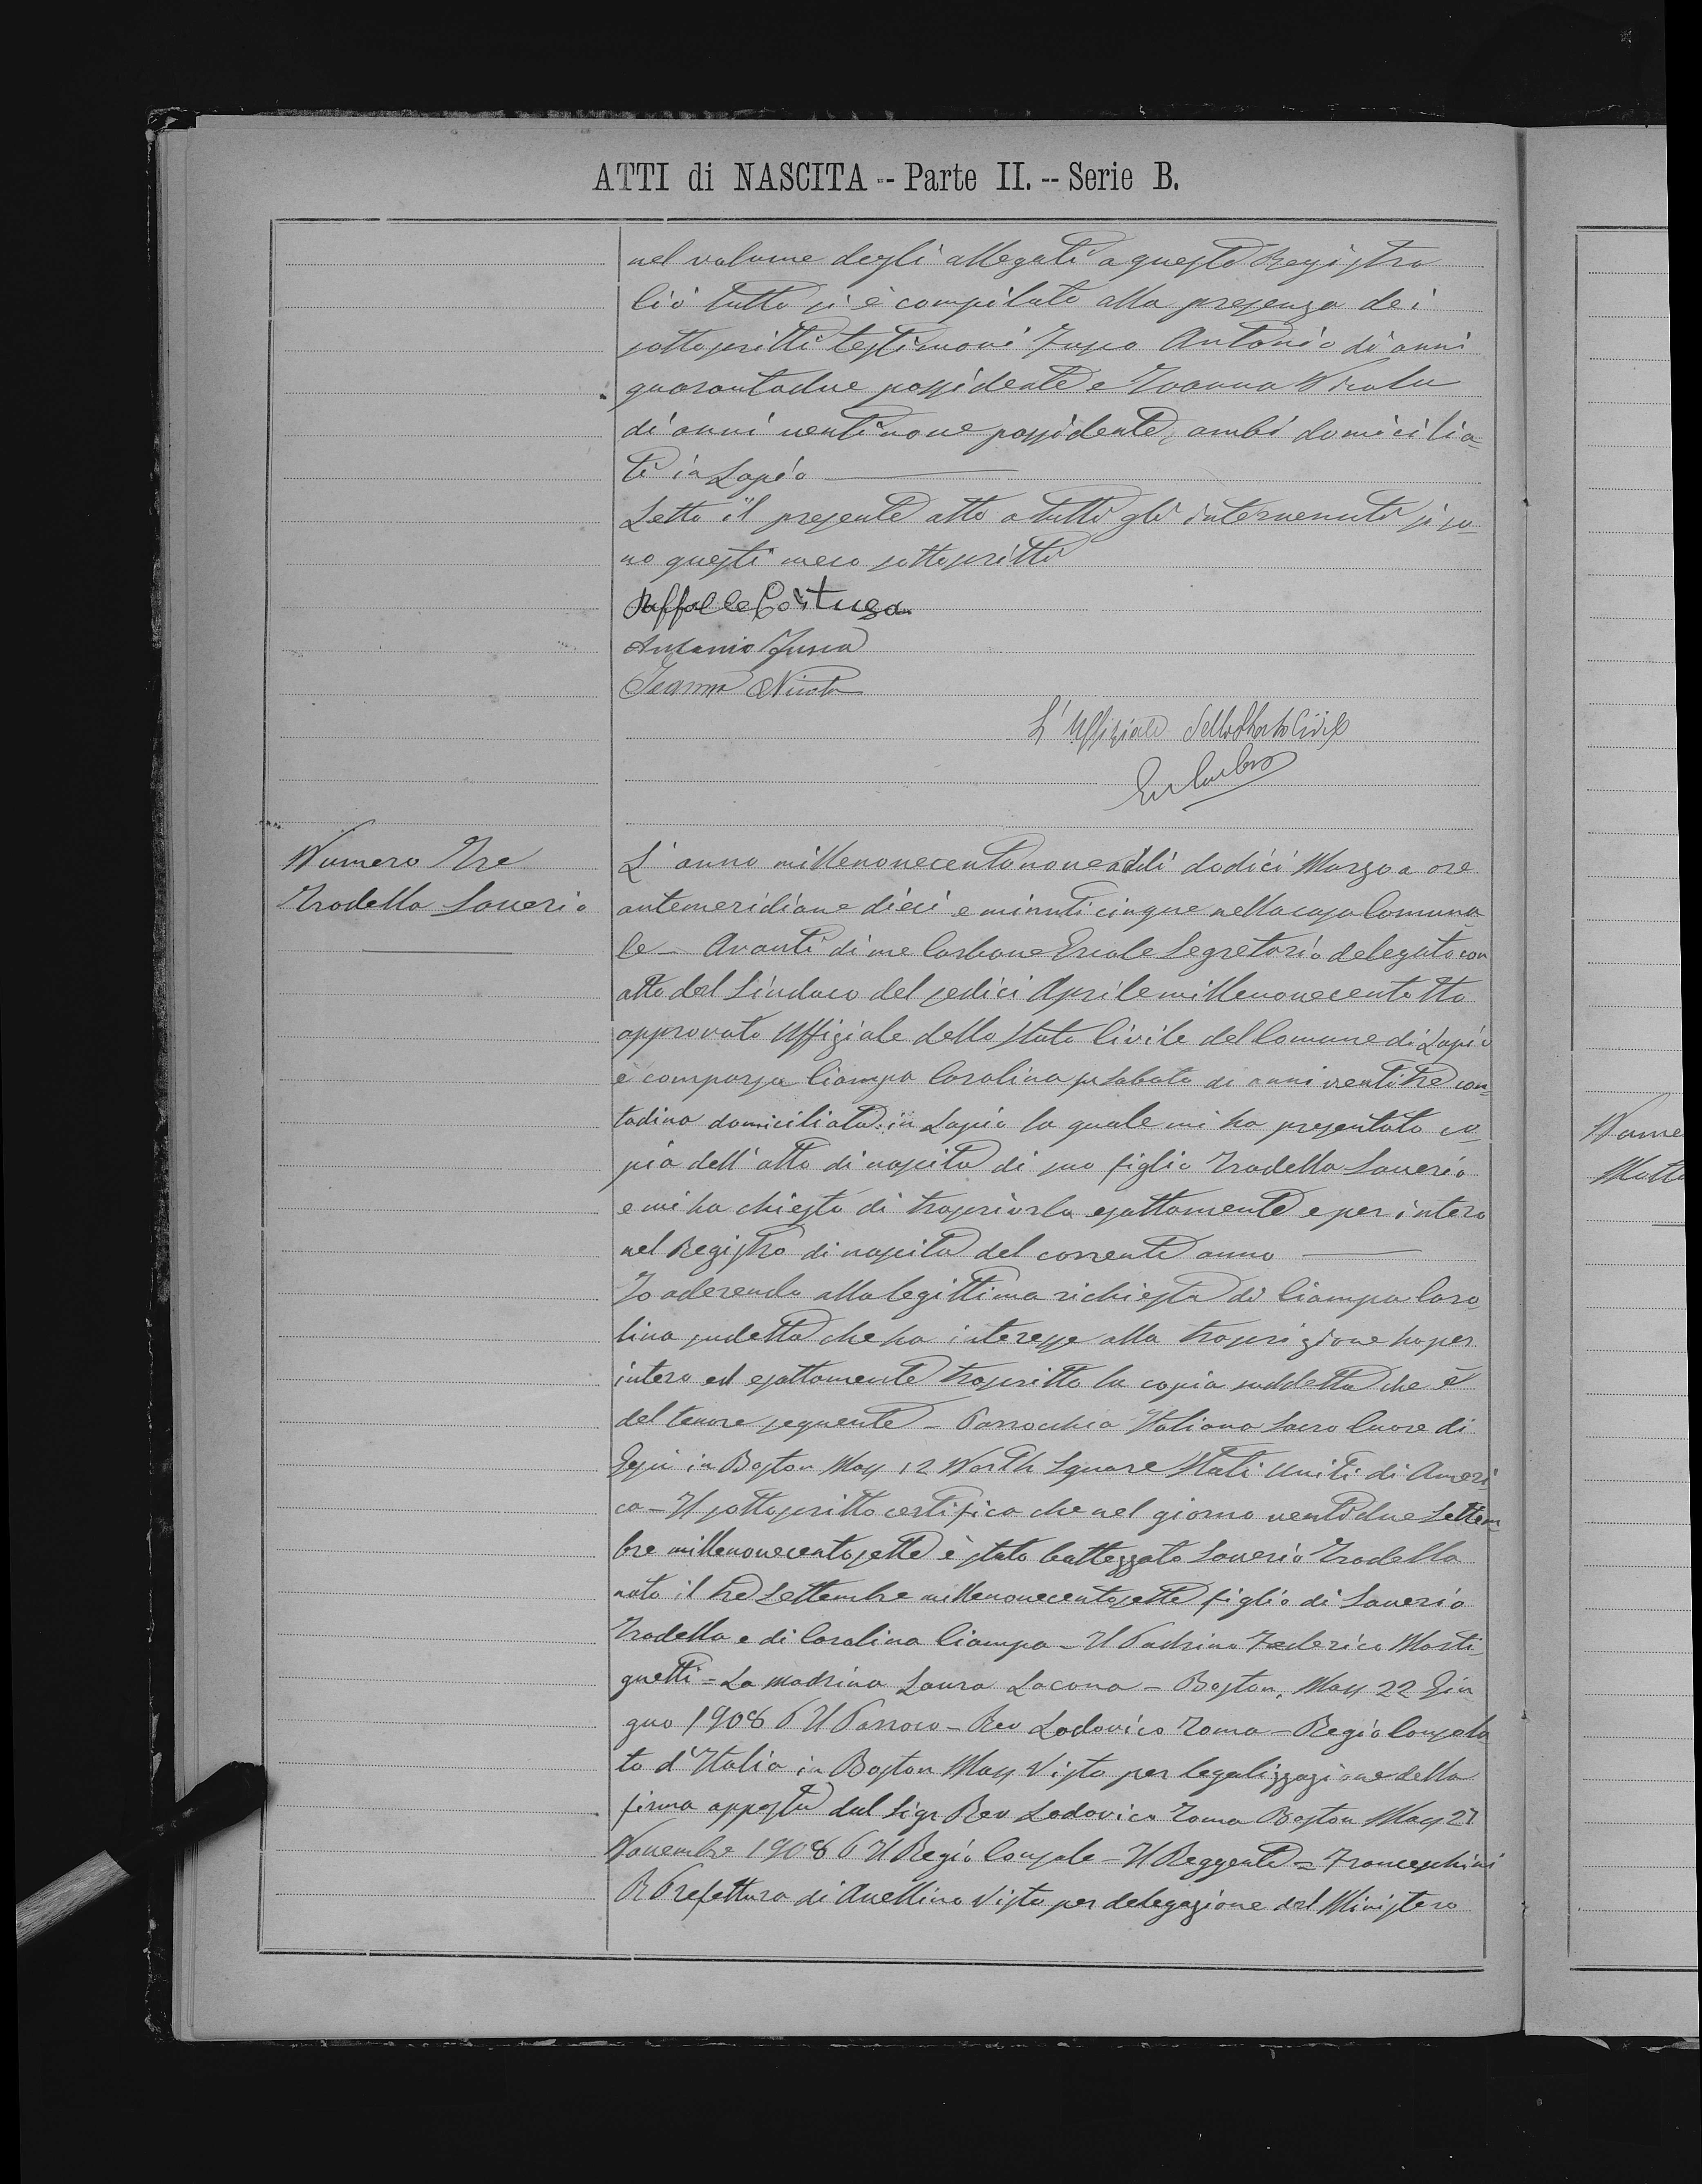 ATTI di NASCITA -- Parte II. -- Serie B.
nel volume degli allegati a questo Registro
Ciò tutto si è compilato alla presenza dei
sottoscritti testimoni Fusco Antonio di anni
quarantadue possidente e Ioanna Nicola
di anni ventinove possidente, ambi domicilia-
ti in Lapio
Letto il presente atto a tutti gli intervenuti si so-
no questi meco sottoscritti
Raffaele Costuga
Antonio Fusco
Ioanna Nicola
L'Uffiziale dello Stato Civile
Numero Tre
Trodella Saverio
L'anno millenovecentonove addì dodici Marzo a ore
antemeridiane dieci e minuti cinque nella casa Comuna-
le - Avanti di me Carbone Ercole Segretario delegato con
atto del Sindaco del sedici Aprile millenovecentotto
approvato Uffiziale dello Stato Civile del Comune di Lapio
è comparsa Ciampa Carolina fu Sabato di anni ventitre con-
tadina domiciliata in Lapio la quale mi ha presentato co-
pia dell'atto di nascita di suo figlio Trodella Saverio
e mi ha chiesto di trascriverla esattamente e per intero
nel Registro di nascita del corrente anno
Io aderendo alla legittima richiesta di Ciampa Caro
lina sudetta che ha interesse alla trascrizione ho per
intero ed esattamente trascritto la copia suddetta che è
del tenore seguente - Parrocchia Italiana Sacro Cuore di
Gesù in Boston Mass 12 North Square Stati Uniti di Ameri
ca - Il sottoscritto certifica che nel giorno ventidue Settem
bre millenovecentosette è stato battezzato Saverio Trodella
nato il tre Settembre millenovecentosette figlio di Saverio
Trodella e di Carolina Ciampa - Il Padrino Federico Marti-
gnetti = La Madrina Laura Lacona - Boston, Mass 22 Giu
gno 1908 Il Parroco - Rev Lodovico Toma - Regio Consola
to d'Italia in Boston Mass Visto per legalizzazione della
firma apposta dal Sigr Rev Lodovico Toma Boston Mass 27
Novembre 1908 Il Regio Console - Il Reggente = Franceschini
R Prefettura di Avellino Visto per delegazione del Ministero
Nume